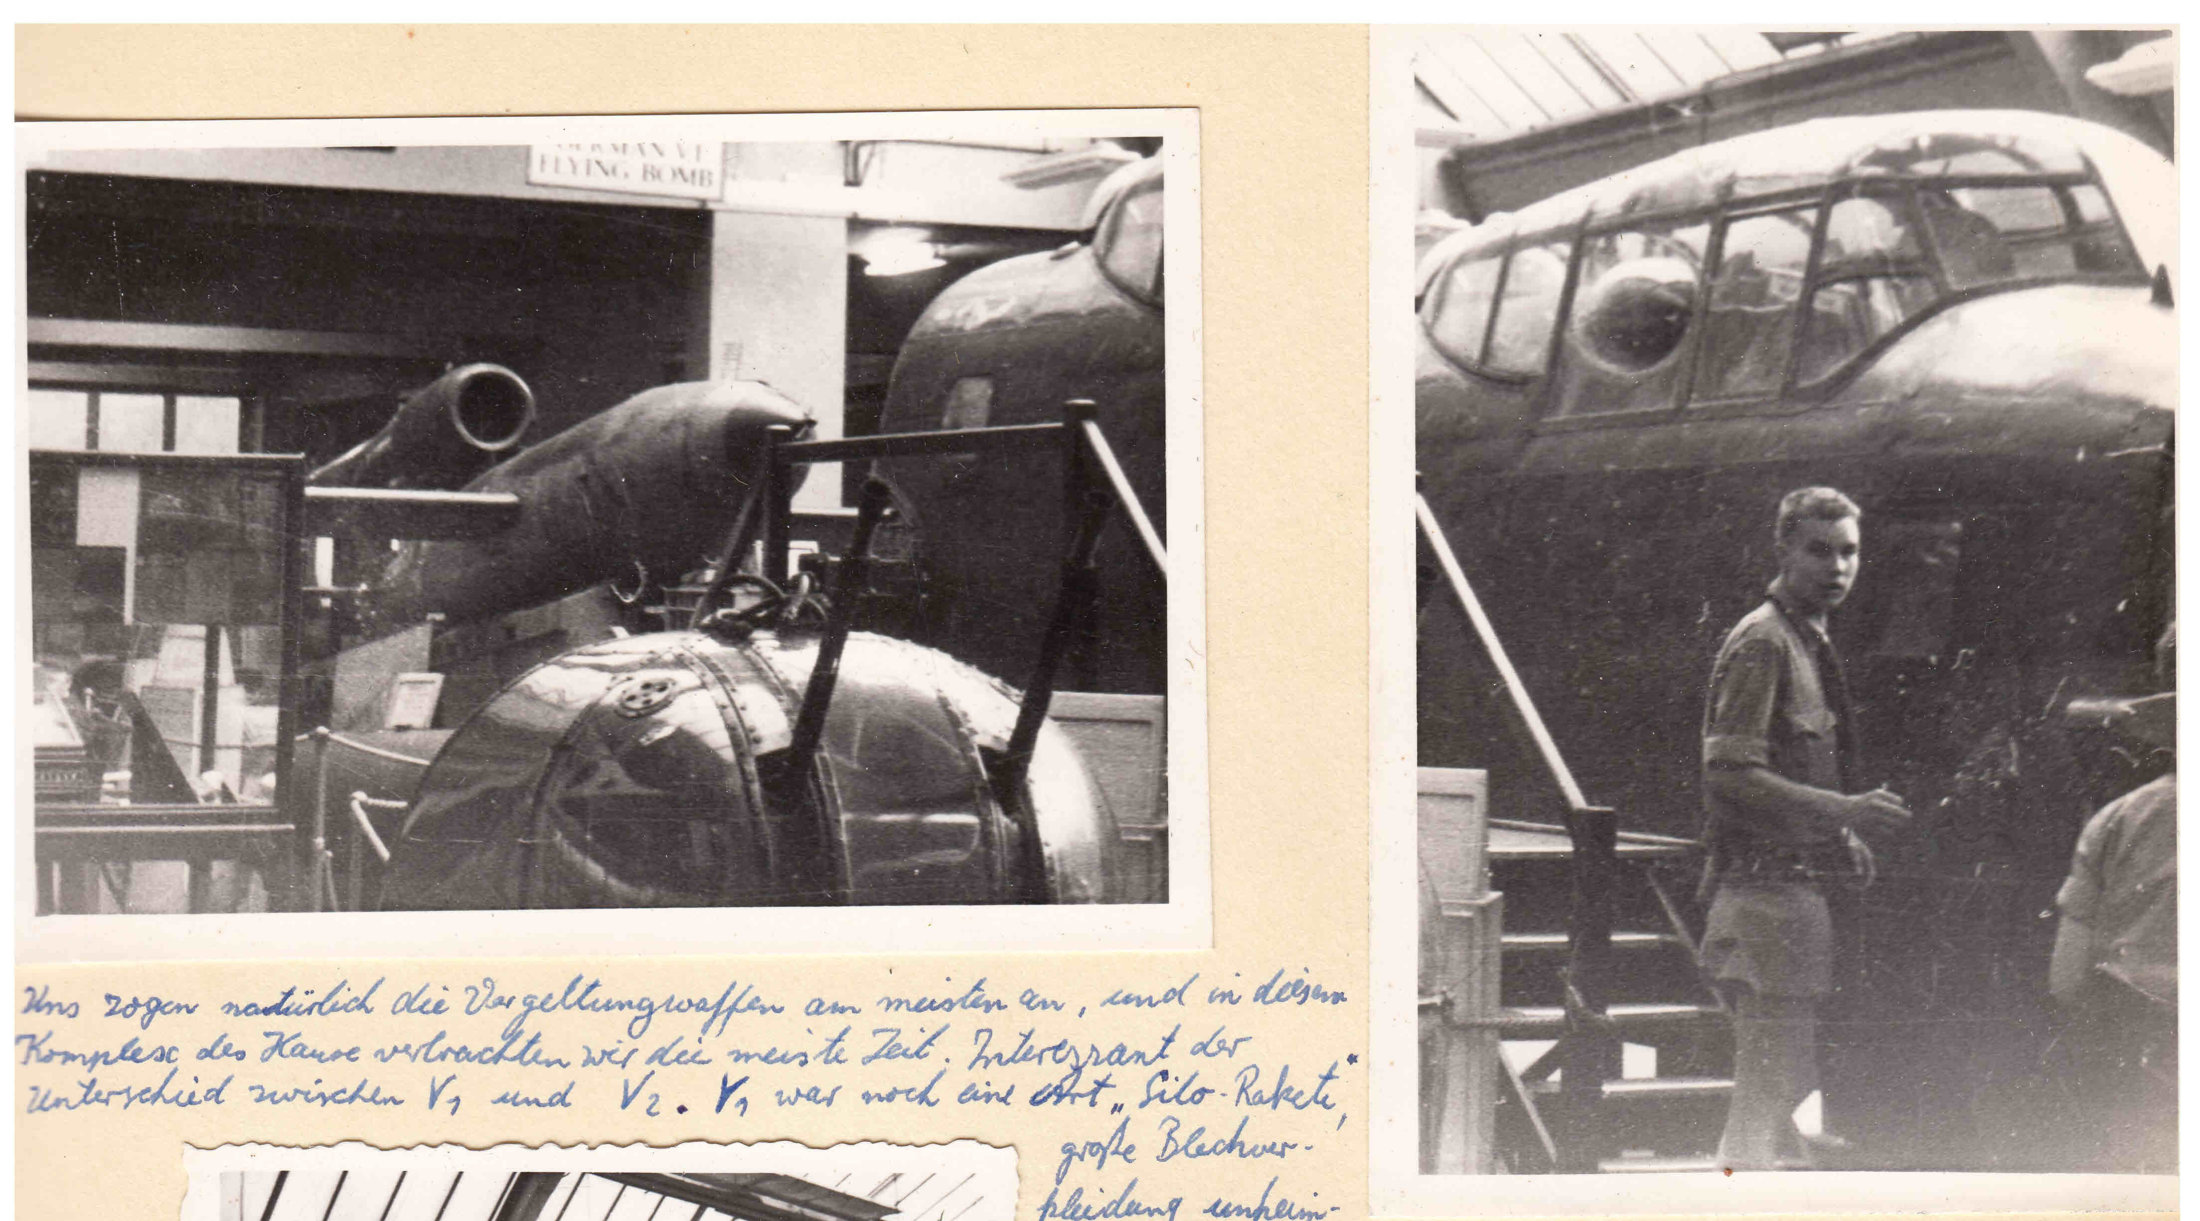 GERMAN V1
FLYING BOMB
Uns zogen natürlich die Vergeltungwaffen am meisten an, und in diesem
Komplex des Hause verbrachten wir die meiste Zeit. Interessant der
Unterschied zwischen V1 und V2. V1 war noch eine Art „Silo-Rakete",
große Blechver-
kleidung unheim-